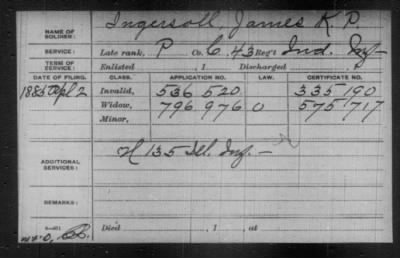 NAME OF SOLDIER: Ingersoll James K. P.
SERVICE: Late rank, P Co. C, 43 Reg't Ind. Inf-
TERM OF SERVICE: Enlisted , 1 Discharged , 1
DATE OF FILING. CLASS. APPLICATION NO. LAW. CERTIFICATE NO.
1885 Apl 2 Invalid, 536 520 335 190
Widow, 796 976 0 575 717
Minor,
ADDITIONAL SERVICES: H 135 Ill. Inf-
REMARKS:
Died , 1 , at